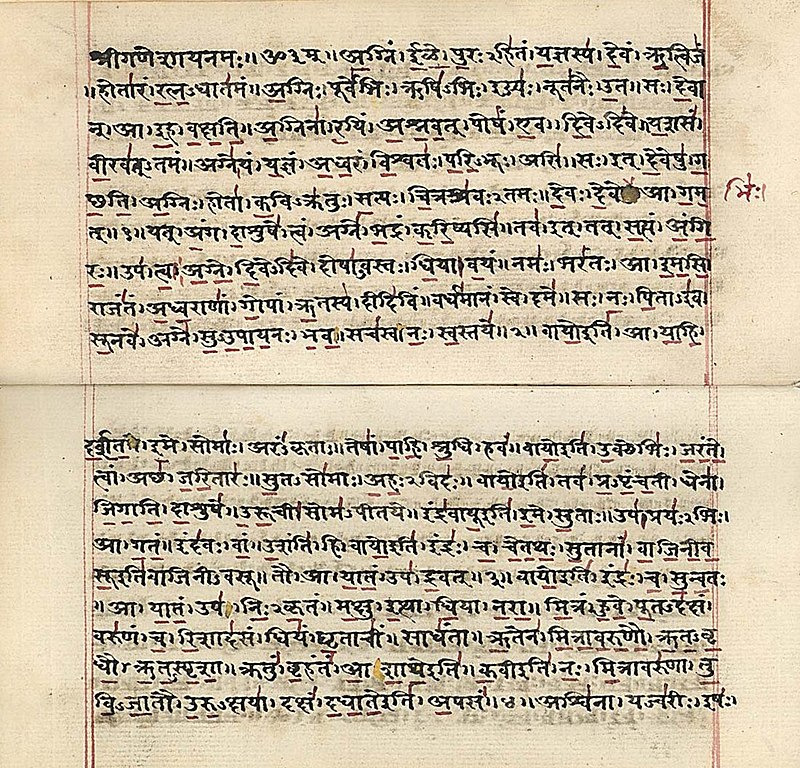 श्रीगणेशायनमः॥ॐ३म्॥अग्निं। ईळे। पुरःऽहितं। यज्ञस्य। देवं। ऋत्विजं
॥होतारं। रत्नऽधातमं॥अग्निः। पूर्वेभिः। ऋषिऽभिः। ईड्यः। नूतनैः। उत॥सः। देवा
न्। आ। इह। वक्षति॥अग्निना। रयिं। अश्नवत्। पोषं। एव। दिवेऽदिवे॥यशसं।
वीरवत्ऽतमं॥अग्ने। यं। यज्ञं। अध्वरं। विश्वतः। परिऽभूः। असि॥सः। इत्। देवेषु। ग
छति। अग्निः। होता। कविऽक्रतुः। सत्यः। चित्रश्रवःऽतमः॥देवः। देवे आ। गम
भिः।
त्॥१॥यत्। अंग। दाशुषे। त्वं। अग्ने। भद्रं। करिष्यसि॥तव। इत्। तत्। सत्यं। अंगि
रः॥उप। त्वा। अग्ने। दिवेऽदिवे। दोषाऽवस्तः। धिया। वयं॥नमः। भरंतः। आ। इमसि॥
राजंतं। अध्वराणां। गोपां। ऋतस्य। दीदिविं॥वर्धमानं। स्वे। दमे॥सः। नः। पिताऽइव।
सूनवे। अग्ने। सुऽउपायनः। भव॥सचस्व। नः। स्वस्तये॥२॥वायोइति। आ। याहि।
दर्शत। इमे। सोमाः। अरंऽकृताः॥तेषां। पाहि। श्रुधि। हवं॥वायोइति। उक्थेभिः। जरंते।
त्वां। अछ। जरितारः॥सुतऽसोमाः। अहःऽविदः॥वायोइति। तव। प्रऽपृंचती। धेना।
जिगाति। दाशुषे॥उरूची। सोमऽपीतये॥इंद्रवायूइति। इमे। सुताः॥उप। प्रयःऽभिः।
आ। गतं॥इंदवः। वां। उशंति। हि॥वायोइति। इंद्रः। च। चेतथः। सुतानां। वाजिनीव
सूइतिवाजिनीऽवसू॥तौ। आ। यातं। उप। द्रवत्॥३॥वायोइति। इंद्रः। च। सुन्वतः
॥आ। यातं। उप। निःऽकृतं॥मक्षु। इत्था। धिया। नरा॥मित्रं। हुवे। पूतऽदक्षं।
वरुणं। च। रिशादसं॥धियं। घृताचीं। साधंता॥ऋतेन। मित्रावरुणौ। ऋतऽवृ
धौ। ऋतऽस्पृशा॥क्रतुं। बृहंतं। आशाथेइति॥कवीइति। नः। मित्रावरुणा। तु
विऽजातौ। उरुऽक्षया॥दक्षं। दधातेइति। अपसं॥४॥अश्विना। यज्वरीः। इषः।